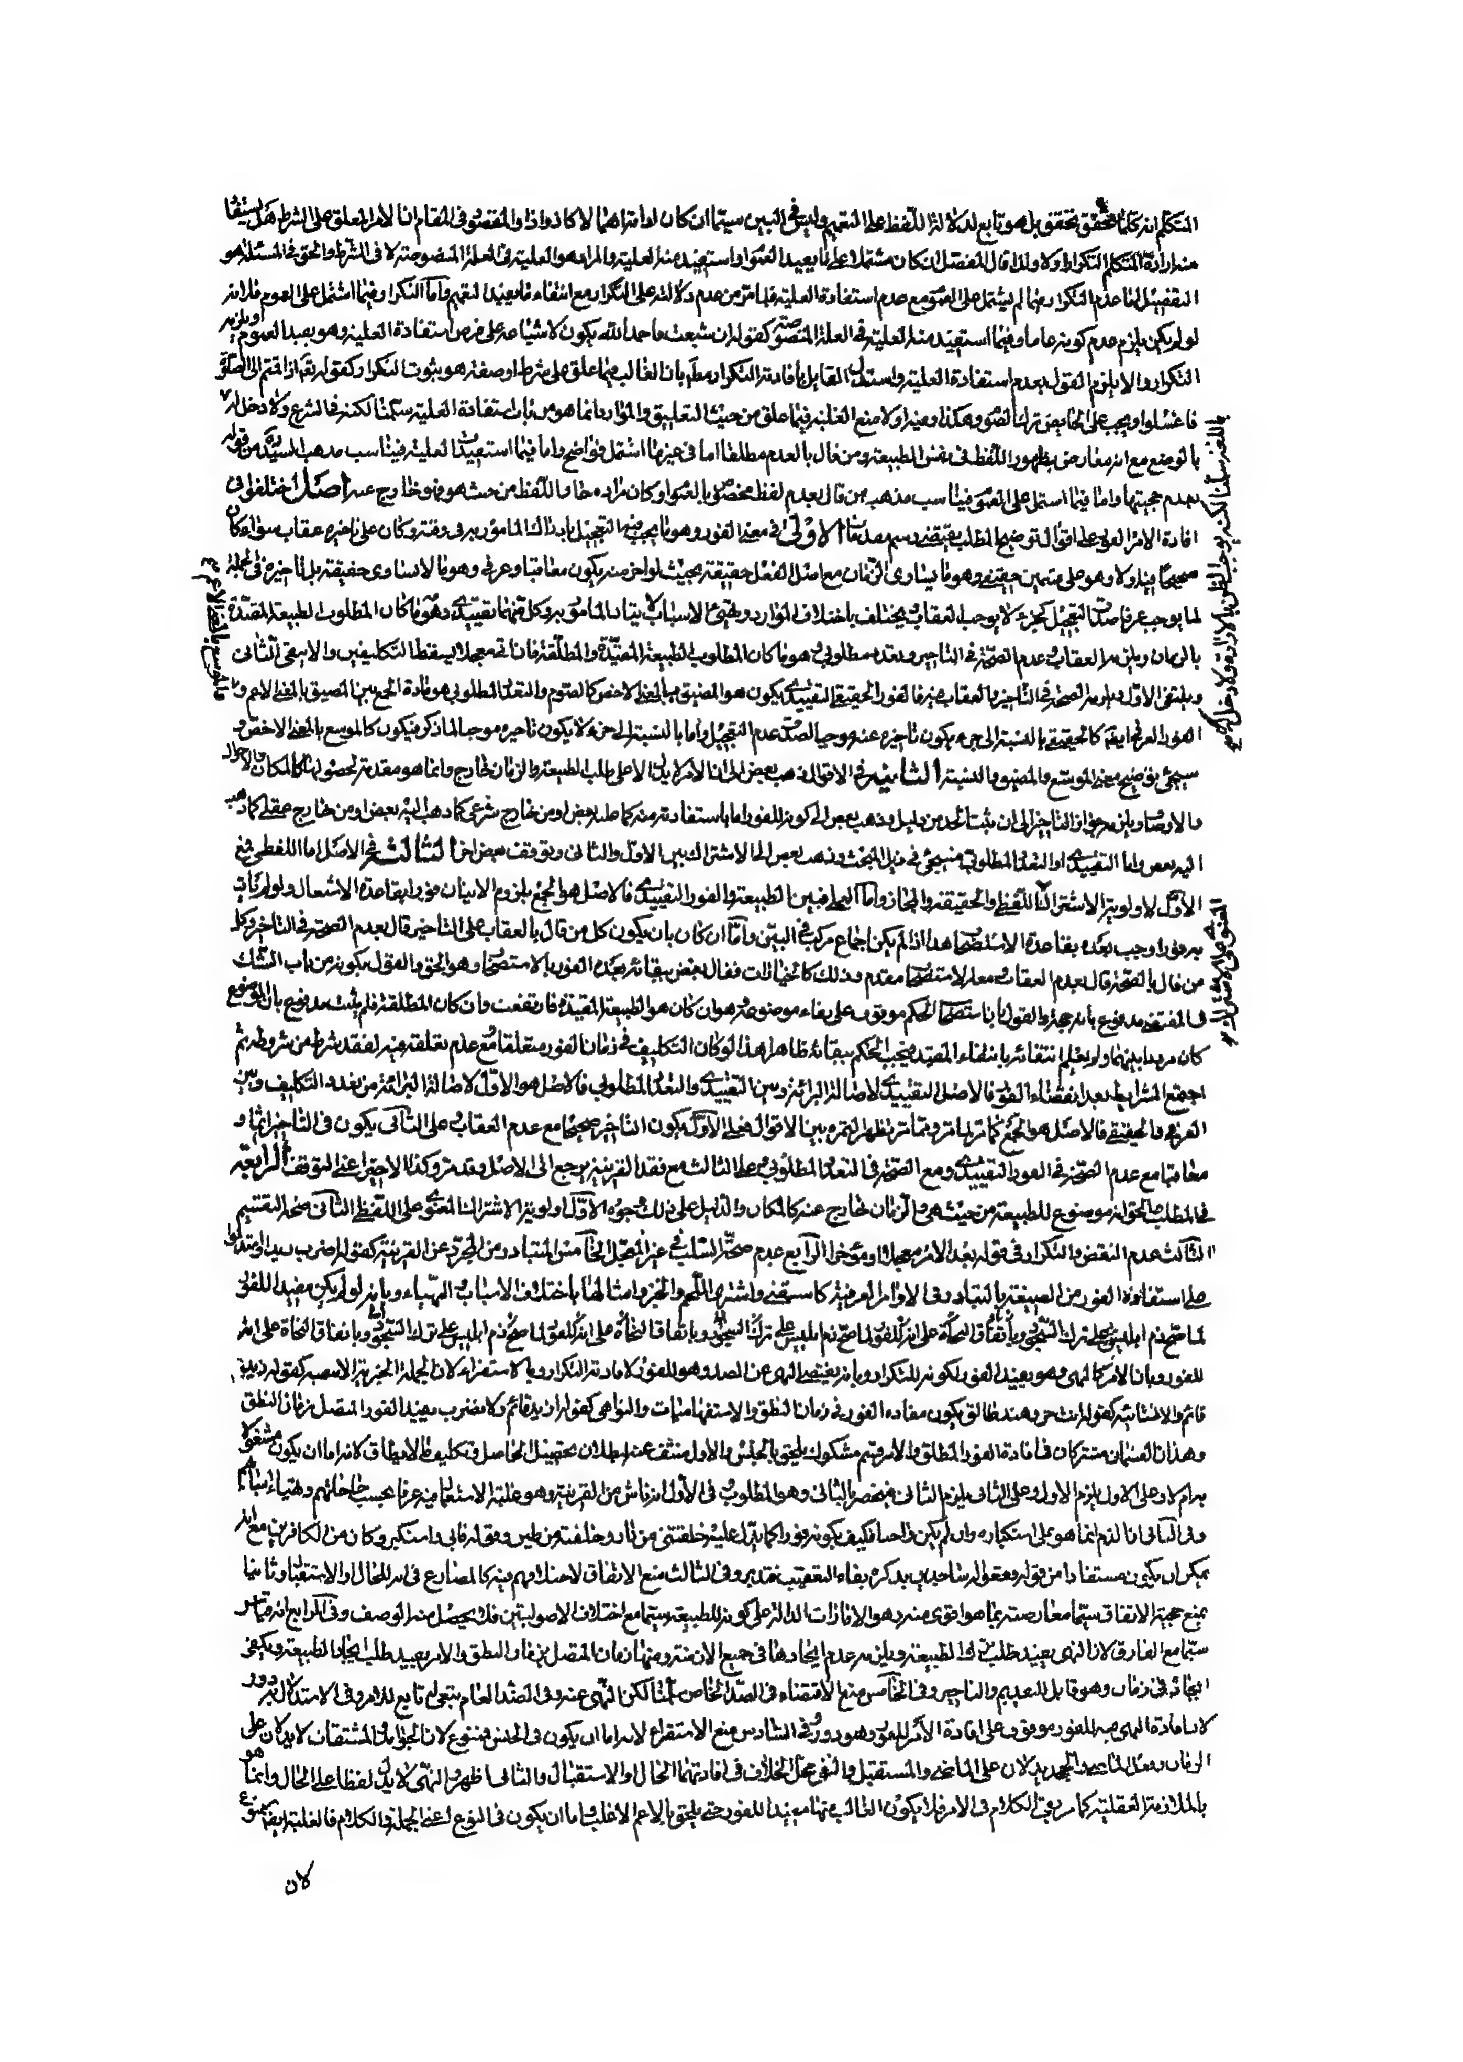 المتكلم انه كلما تحقق تحقق بل هو تابع لدلالة اللفظ على التعميم وليس في البين سيما ان كان اداتها مما لا كاذ واذا والمقصود في المقام ان الامر المعلق على الشرط هل يستفا
منه ارادة المتكلم التكرار او لا ولذا قال المفصل ان كان مشتملا على ما يفيد العموم او استفيد منه العلية والمراد هو العلية في العلة المنصوصة لا في الشرط والحق في المسئلة هو
التفصيل لنا عدم التكرار فيما لم يشتمل على العموم مع عدم استفادة العلية فلما مر من عدم دلالته على التكرار مع انتفاء ما يفيد التعميم واما التكرار فيما اشتمل على العموم فلانه
لو لم يكن يلزم عدم كونه عاما وفيما استفيد منه العلية في العلة المنصوصة كقوله ان شبعت فاحمد الله يكون لاشياعه على فرض استفادة العلية وهو يفيد العموم او يلزم
التكرار والا يلزم القول بعدم استفادة العلية واستدل القايل بافادته التكرار مط بان الغالب فيما علق على شرط او صفة هو ثبوت التكرار كقوله تعالى اذا قمتم الى الصلوة
فاغسلوا ويجب على الحايض ترك الصوم وهكذا وفيه اولا منع الغلبة فيما علق من حيث التعليق والموارد انما هو من باب استفادة العلية سلمنا لكنه في الشرع ولا دخل له
بالوضع مع انه معارض بظهور اللفظ في نفس الطبيعة ومن قال بالعدم مطلقا اما في غير ما اشتمل فواضح واما فيما استفيدت العلية فيناسب مذهب السيد من قوله
بعدم حجيتها واما فيما اشتمل على العموم فيناسب مذهب من قال بعدم لفظ مخصوص بالعموم او كان مراده حال اللفظ من حيث هو هو وخارج عنه اصل اختلفوا في
افادة الامر الفور على اقوال توضيح المطلب يقتضي رسم مقدمات الاولى في معنى الفور وهو ما يجب فيه التعجيل باتيان المامور به في وقته وكان على تاخيره عقاب سواء كان
صحيحا فيه او لا وهو على قسمين حقيقي وهو ما يساوى الزمان مع اصل الفعل حقيقة بحيث لو اخر منه يكون معاقبا وعرفي وهو ما لا يساوى حقيقة بل تاخيره في الجملة
لما يوجب عرفا صدق التعجيل كجزء لا يوجب العقاب ويختلف باختلاف الموارد وتهيئ الاسباب لاتيان المامور به وكل منهما تقييدي وهو ما كان المطلوب الطبيعة المقيدة
بالزمان ويلزمه العقاب وعدم الصحة في التاخير وتعدد مطلوبي وهو ما كان المطلوب الطبيعة المقيدة والمطلقة فان اتى معجلا يسقط التكليفين والا يبقى الثانى
وينتفى الاول ويلزمه الصحة في التاخير والعقاب فيه فالفور الحقيقي التقييدي يكون هو المضيق بالمعنى الاخص كالصوم والتعدد المطلوبي هو مادة الجمع بين المضيق بالمعنى الاعم و
الفور العرفي ايضا كالحقيقي بالنسبة الى جزء يكون تاخيره عنه موجبا لصدق عدم التعجيل واما بالنسبة الى جزء لا يكون تاخيره موجبا لما ذكر فيكون كالموسع بالمعنى الاخص و
سيجئ توضيح معنى الموسع والمضيق والنسبة الثانية في الاقوال ذهب بعض الى ان الامر لا يدل الا على طلب الطبيعة والزمان خارج وانما هو مقدمة لحصولها كالمكان والاحوال
والاوصاف ويلزمه جواز التاخير الى ان يثبت الحد من دليل وذهب بعض الى كونه للفور اما باستفادته منه كما عليه بعض او من خارج شرعي كما ذهب اليه بعض او من خارج عقلى كما ذهب
اليه بعض واما التقييدي او التعدد المطلوبي فسيجئ في ذيل المبحث وذهب بعض الى الاشتراك بين الاول والثانى وتوقف بعض اخر الثالث في الاصل اما اللفظي فمع
الاول لاولوية الاشتراك اللفظى والحقيقة والمجاز واما العملي فبين الطبيعة والفور التقييدي فالاصل هو الجمع بلزوم الاتيان فورا بقاعدة الاشتغال ولو لم يات
به فورا وجب بعده بقاعدة الاستصحاب هذا اذا لم يكن اجماع مركب في البين واما ان كان بان يكون كل من قال بالعقاب على التاخير قال بعدم الصحة في التاخير وكل
من قال بالصحة قال بعدم العقاب فعلى الاستصحاب مقدم وذلك كالخيارات فقال بعض ببقائه بعد الفور بالاستصحاب وهو الحق والقول بكونه من باب الشك
في المقتضى مدفوع بانه حجة والقول بان استصحاب الحكم موقوف على بقاء موضوعه وهو ان كان هو الطبيعة المقيدة فارتفعت وان كان المطلقة فلم يثبت مدفوع بان الموضوع
كان مرددا بينهما ولم يعلم انتفائه بانتفاء المقيد فيجب الحكم ببقائه ظاهرا هذا لو كان التكليف في زمان الفور متعلقا ومع عدم تعلقه فيه لفقد شرط من شروطه ثم
اجتمع الشرايط بعد انقضاء الفور فالاصل التقييدي لاصالة البرائة وبين التقييدي والتعدد المطلوبي فالاصل هو الاول لاصالة البرائة من تعدد التكليف وبين
العرفي والحقيقي فالاصل هو الجمع كما مر بل مر ومما مر تظهر الثمرة بين الاقوال فعلى الاول يكون التاخير صحيحا مع عدم العقاب وعلى الثانى يكون في التاخير اثما و
معاقبا مع عدم الصحة في الفور التقييدي ومع الصحة في التعدد المطلوبي وعلى الثالث مع فقد القرينة يرجع الى الاصل وقد مر وكذا الاخير اعنى التوقف الرابعة
في المطلب والحق انه موضوع للطبيعة من حيث هي والزمان خارج عنه كالمكان والدليل على ذلك وجوه الاول اولوية الاشتراك المعنوي على اللفظي الثانى صحة التقسيم
الثالث عدم النقض والتكرار في قوله بعد الامر معجلا او مؤخرا الرابع عدم صحة السلب في غير المعجل الخامس المتبادر من المجرد عن القرينة كقوله اضرب زيدا واستدلوا
على استفادة الفور من الصيغة بالتبادر في الاوامر العرفية كاسقنى واشتر اللحم والخبز وامثالها باختلاف الاسباب المهيئة وبانه لو لم يكن مفيدا للفور
لما صح ذم ابليس على ترك السجود وباتفاق النحاة على انه للفور لما صح ذم ابليس على ترك السجود وباتفاق النحاة على انه للفور لما صح ذم ابليس على ترك السجود وباتفاق النحاة على انه
للفور وبان الامر كالنهى وهو يفيد الفور لكونه للتكرار وبانه يقتضى النهى عن الضد وهو للفور لافادته التكرار وبالاستقراء لان الجملة الخبرية الاسمية كقوله زيد
قائم والانشائية كقوله انت حر وهند طالق يكون مفاده الفور في زمان النطق والاستفهاميات والنواهي كقوله ان زيد قائم ولا تضرب يفيد الفور المتصل بزمان النطق
وهذان القسمان مشتركان في افادة الفور المطلق والامر قسم مشكوك يلحق بالجنس والاول منتف عنه لبطلان تحصيل الحاصل وتكليف ما لا يطاق لانه اما ان يكون مشغولا
به ام لا وعلى الاول يلزم الاول وعلى الثانى يلزم الثانى فينحصر بالثانى وهو المطلوب وفى الاول انه ناش من القرينة وهو غلبة الاستعمال فيه عرفا بحسب حاجاتهم وتهيئة اسبابهم
وفى الثانى ان الذم انما هو على استكباره وان لم يكن واجبا فكيف بكونه فورا كما يدل عليه خلقتنى من نار وخلقته من طين وقوله فابى واستكبر وكان من الكافرين مع انه
يمكن ان يكون مستفادا من قوله فقعوا له ساجدين بذكره بفاء التعقيب فتدبر وفى الثالث منع الاتفاق لاختلافهم فيه كالمضارع في انه للحال او الاستقبال وثانيا
بمنع حجية الاتفاق سيما معارضته بما هو اقوى منه وهو الافادات الدالة على كونه للطبيعة سيما مع اختلاف الاصوليين فلا يحصل منه الوصف وفى الرابع انه قياس
سيما مع الفارق لان النهى يفيد طلب ترك الطبيعة ويلزمه عدم ايجادها في جميع الازمنة ومنها زمان المتصل بزمان النطق والامر يفيد طلب ايجاد الطبيعة ويكفى
ايجاده في زمان وهو قابل للتقديم والتاخير وفى الخامس منع الاقتضاء في الضد الخاص سلمنا لكن النهى عنه وفى الضد العام تبعى له تابع للامر وفى الاستدلال به دور
لان افادة النهى فيه للفور موقوف على افادة الامر للفور وهو دور وفى السادس منع الاستقراء لانه اما ان يكون في الجنس فممنوع لان الجوامد والمشتقات لا يدلان على
الزمان وفعل الماضى والجحد يدلان على الماضى والمستقبل والنفى محل الخلاف في افادتهما الحال او الاستقبال والثانى اظهر والنهى لا يدل لفظا على الحال وانما هو
بالملازمة العقلية كما مر وبقى الكلام في الامر فلا يكون الغالب منها مفيدا للفور حتى يلحق بالاعم الاغلب واما ان يكون في النوع اعنى الجملة والكلام فالغلبة ايضا ممنوع
لان